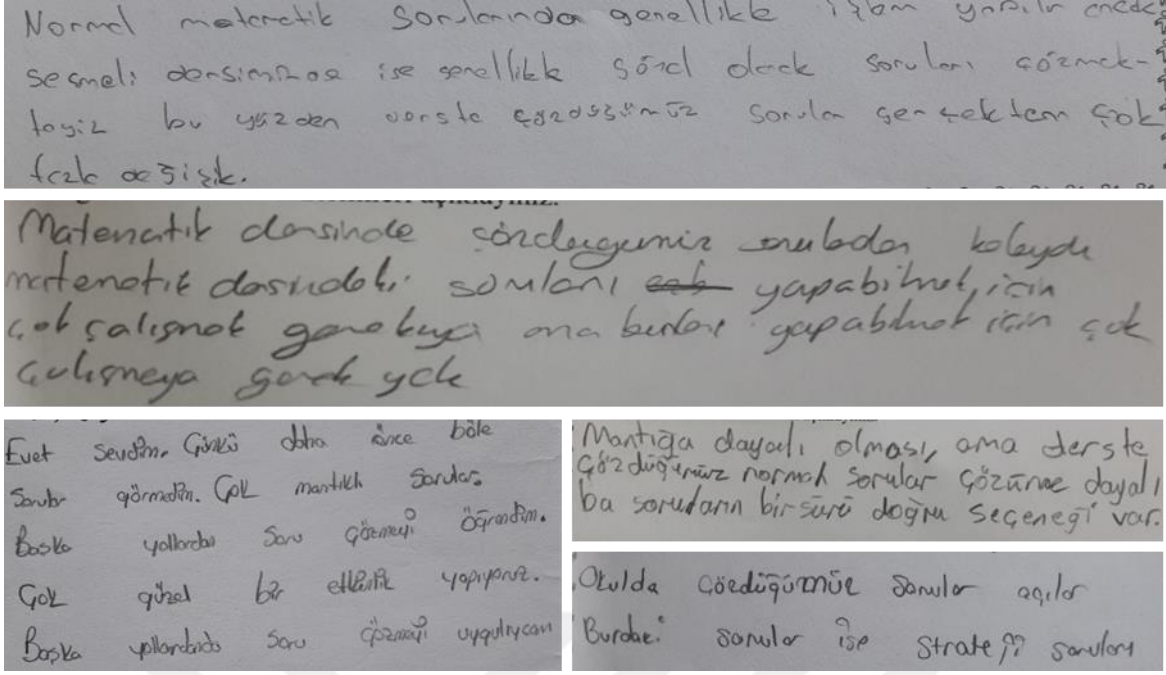 Normal matematik sorularında genellikle işlem yapılır
seçmeli dersimizde ise genellikle sözel olarak soruları çözmek-
teyiz bu yüzden derste çözdüğümüz sorular gerçekten çok
fazla değişik.
Matematik dersinde çözdüğümüz kolaydı
matematik dersindeki soruları yapabilmek için
çok çalışmak gerekiyor ama bunları yapabilmek için çok
çalışmaya gerek yok
Evet sevdim. Çünkü daha önce böle
Sorular görmedim. Çok mantıklı Sorular.
Başka yollardan Soru çözmeyi öğrendim.
Çok güzel bir etkinlik yapıyoruz.
Başka yollardanda Soru çözmeyi uygulıycam
Mantığa dayalı olması, ama derste
çözdüğümüz normal sorular çözüme dayalı
bu soruların bir sürü doğru seçeneği var.
Okulda Çözdüğümüz Sorular açılar
Burdaki sorular ise strateji soruları